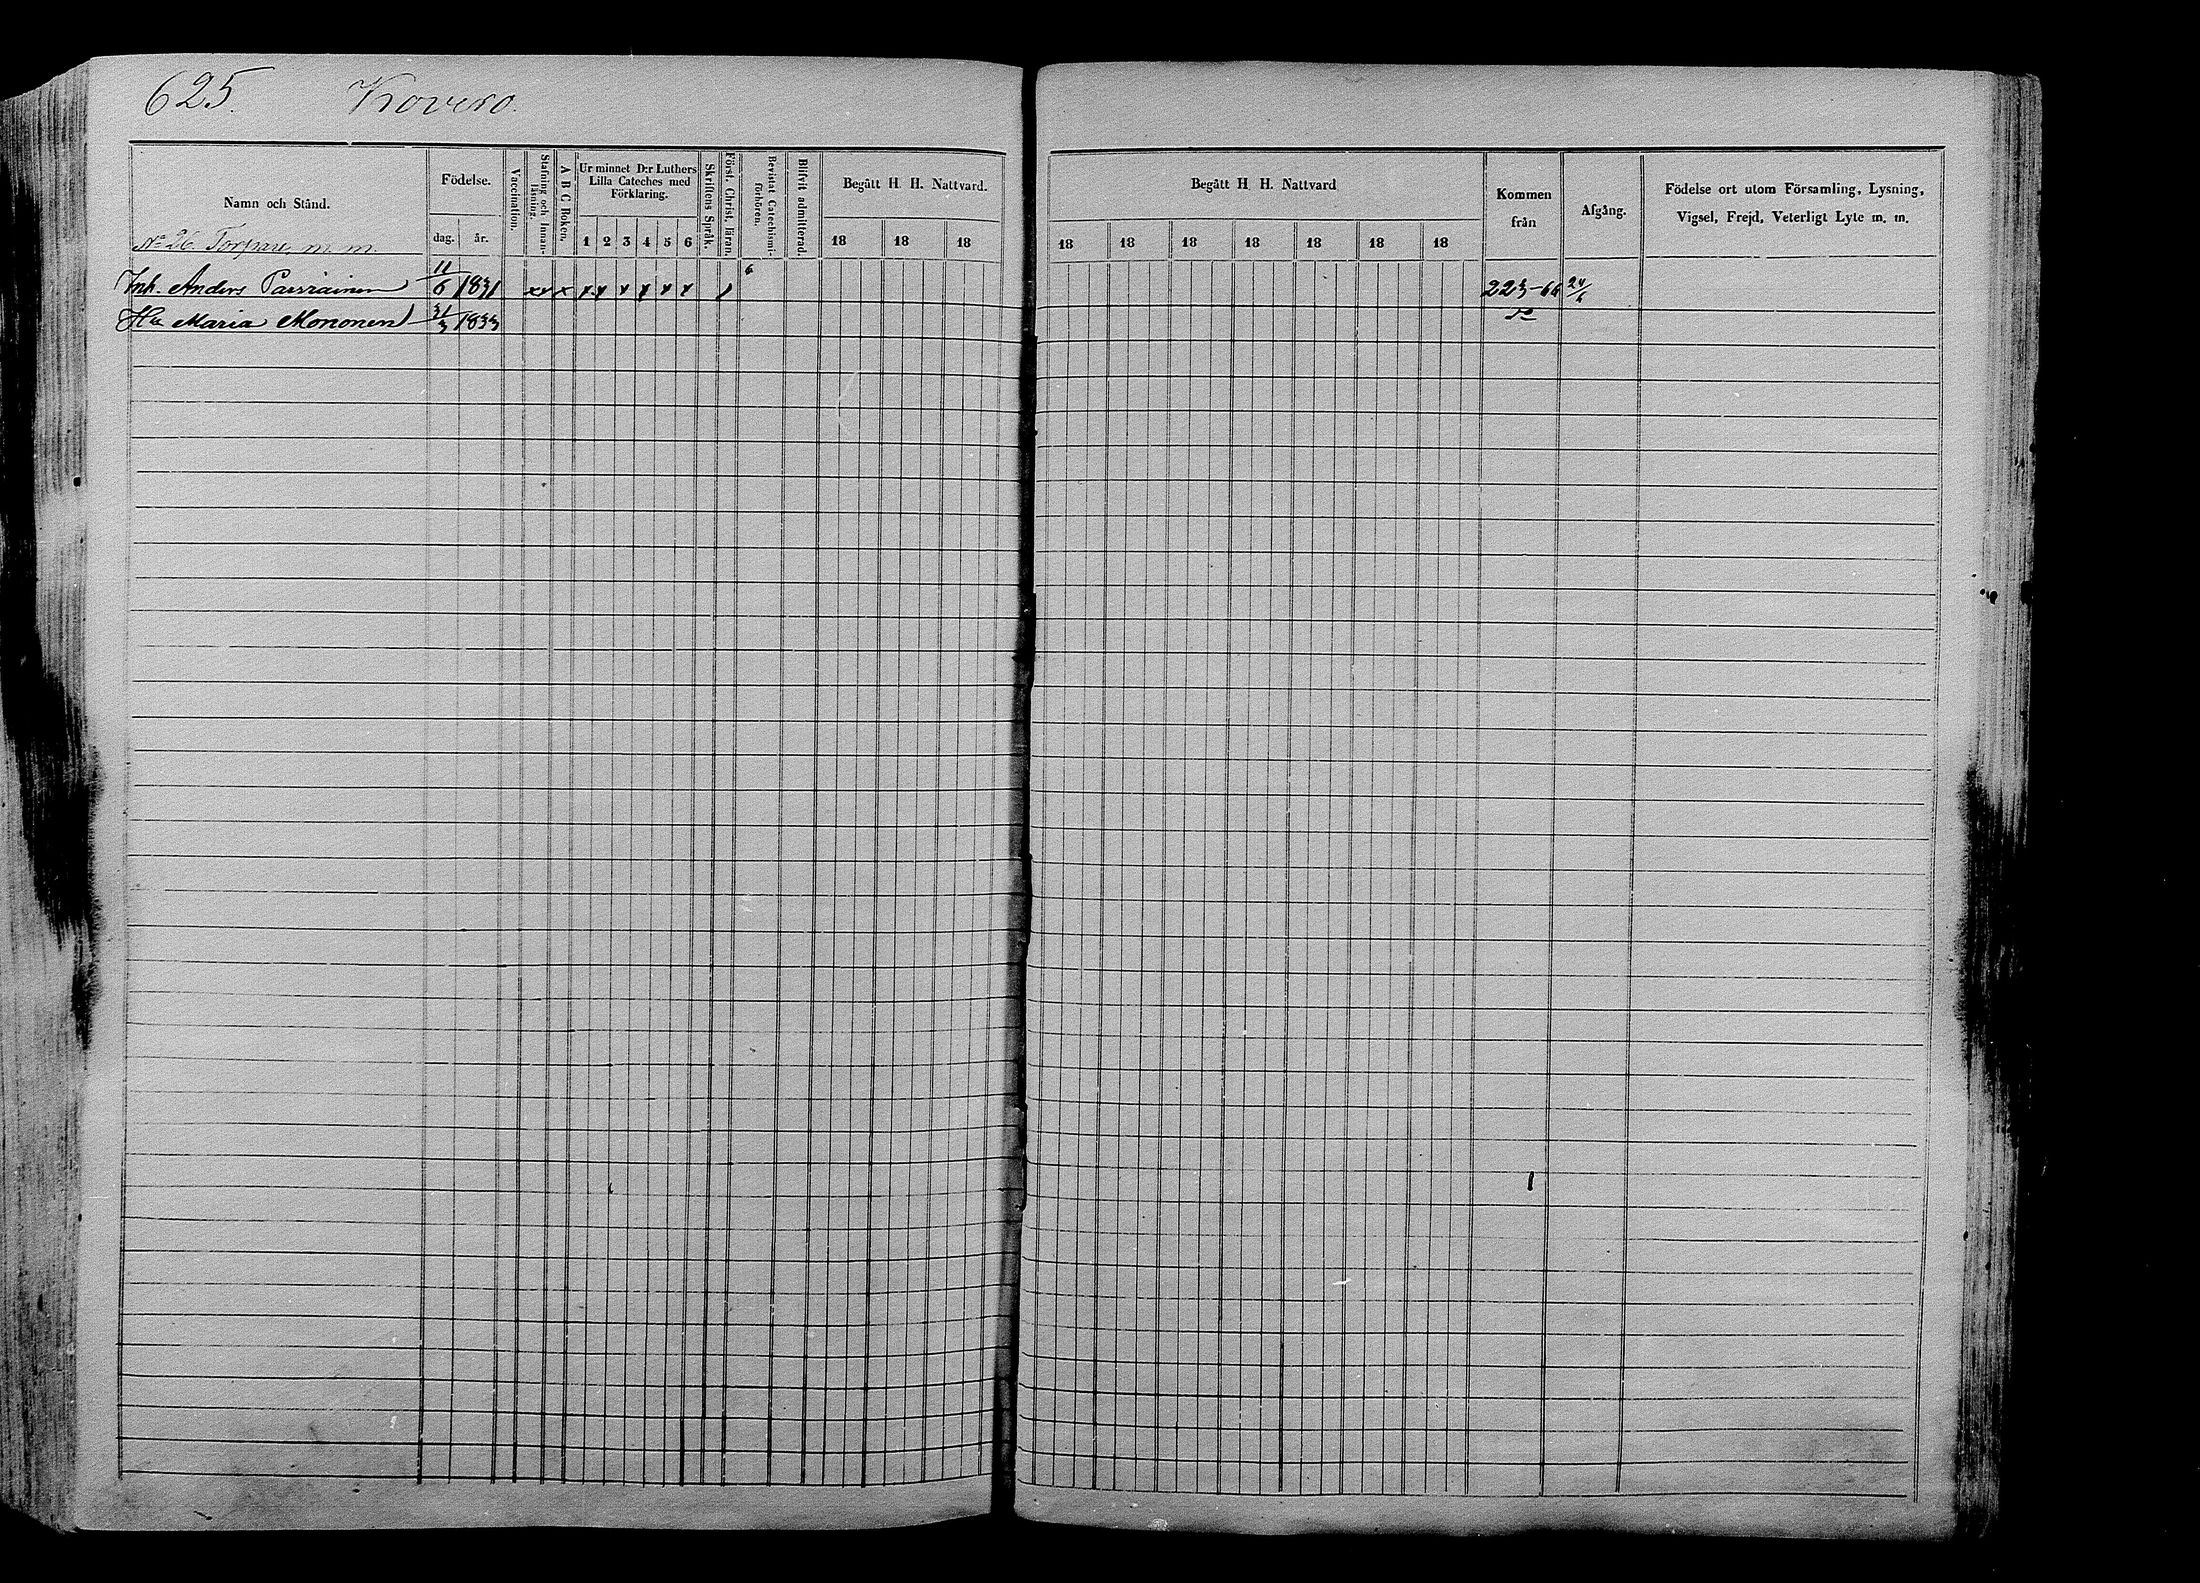 625. Kovero.
Namn och Stånd.
Födelse.
dag. år.
Vaccination.
Stafning och Innanläsning.
A B C Boken.
Ur minnet D:r Luthers
Lilla Cateches med
Förklaring.
1 2 3 4 5 6
Skriftens Språk.
Först. Christ. läran.
Bevistat Catechismiförhören.
Blifvit admitterad.
Begått H. H. Nattvard.
18 18 18
Begått H. H. Nattvard
18 18 18 18 18 18 18
Kommen
från
Afgång.
Födelse ort utom Församling, Lysning,
Vigsel, Frejd, Veterligt Lyte m. m.
No 26. Torpare, m. m.
Inh. Anders Parviainen 11/6 1831 x x x x x x x x x
Hu Maria Mononen 31/3 1833